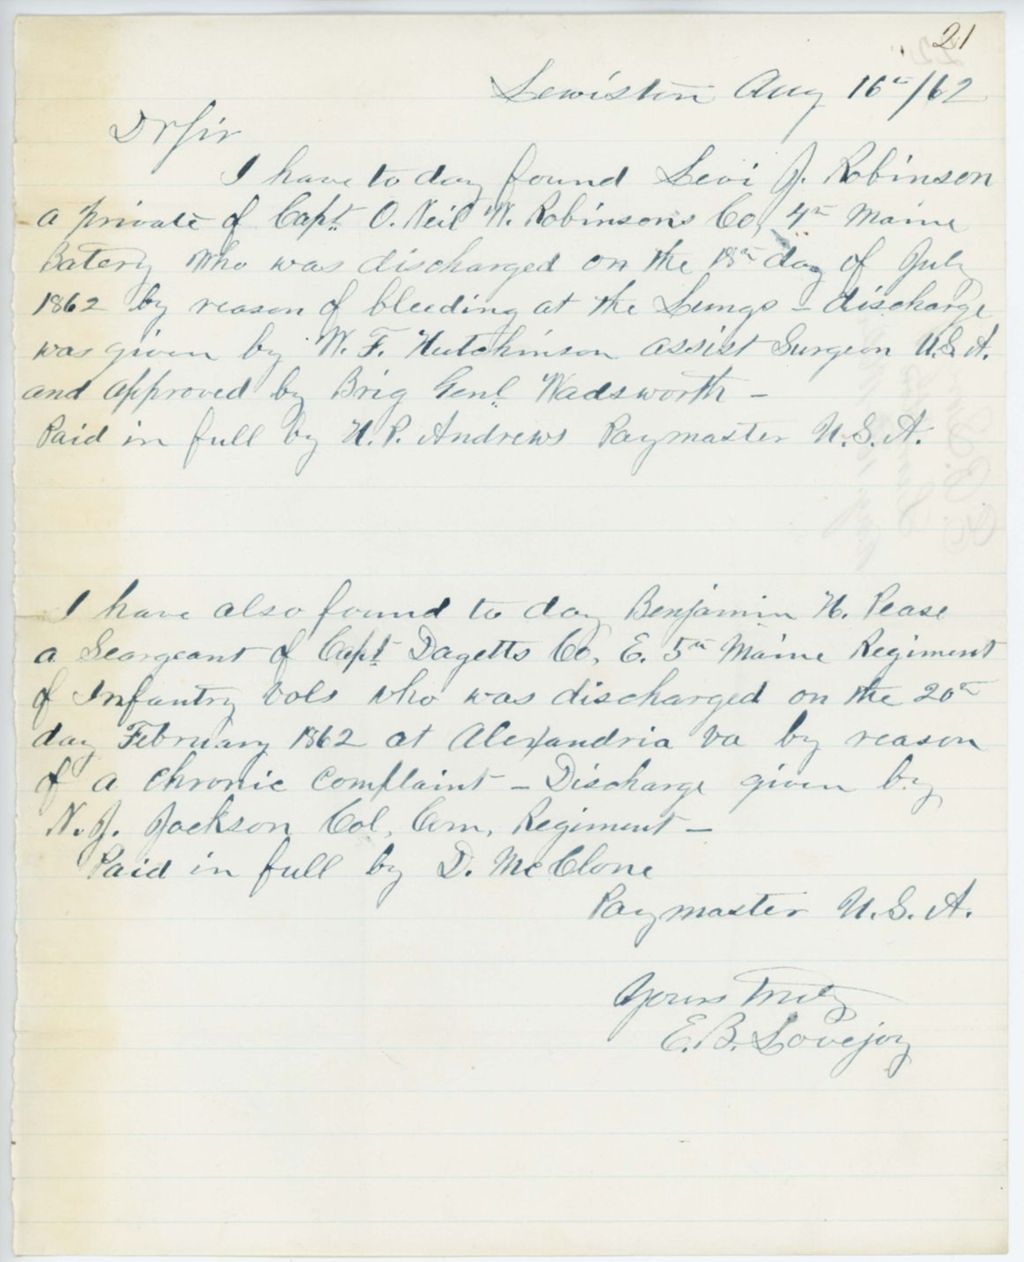 21
Lewiston Aug 16th/62
Dr Sir
I have to day found Levi J. Robinson
a private of Capt. O. Neil W. Robinsons Co, 4th Maine
Batery who was discharged on the 18th day of July
1862 by reason of bleeding at the Lungs - discharge
was given by W. F. Hutchinson assist Surgeon U.S.A.
and approved by Brig Genl. Wadsworth -
Paid in full by H. P. Andrews Paymaster U.S.A.
I have also found to day Benjamin H. Pease
a Seargeant of Capt. Dagetts Co, E. 5th Maine Regiment
of Infantry Vols who was discharged on the 20th
day February 1862 at Alexandria Va by reason
of a chronic complaint - Discharge given by
N. J. Jackson Col, Com, Regiment -
Paid in full by D. McClone
Paymaster U.S.A.
Yours Truly
E. B. Lovejoy